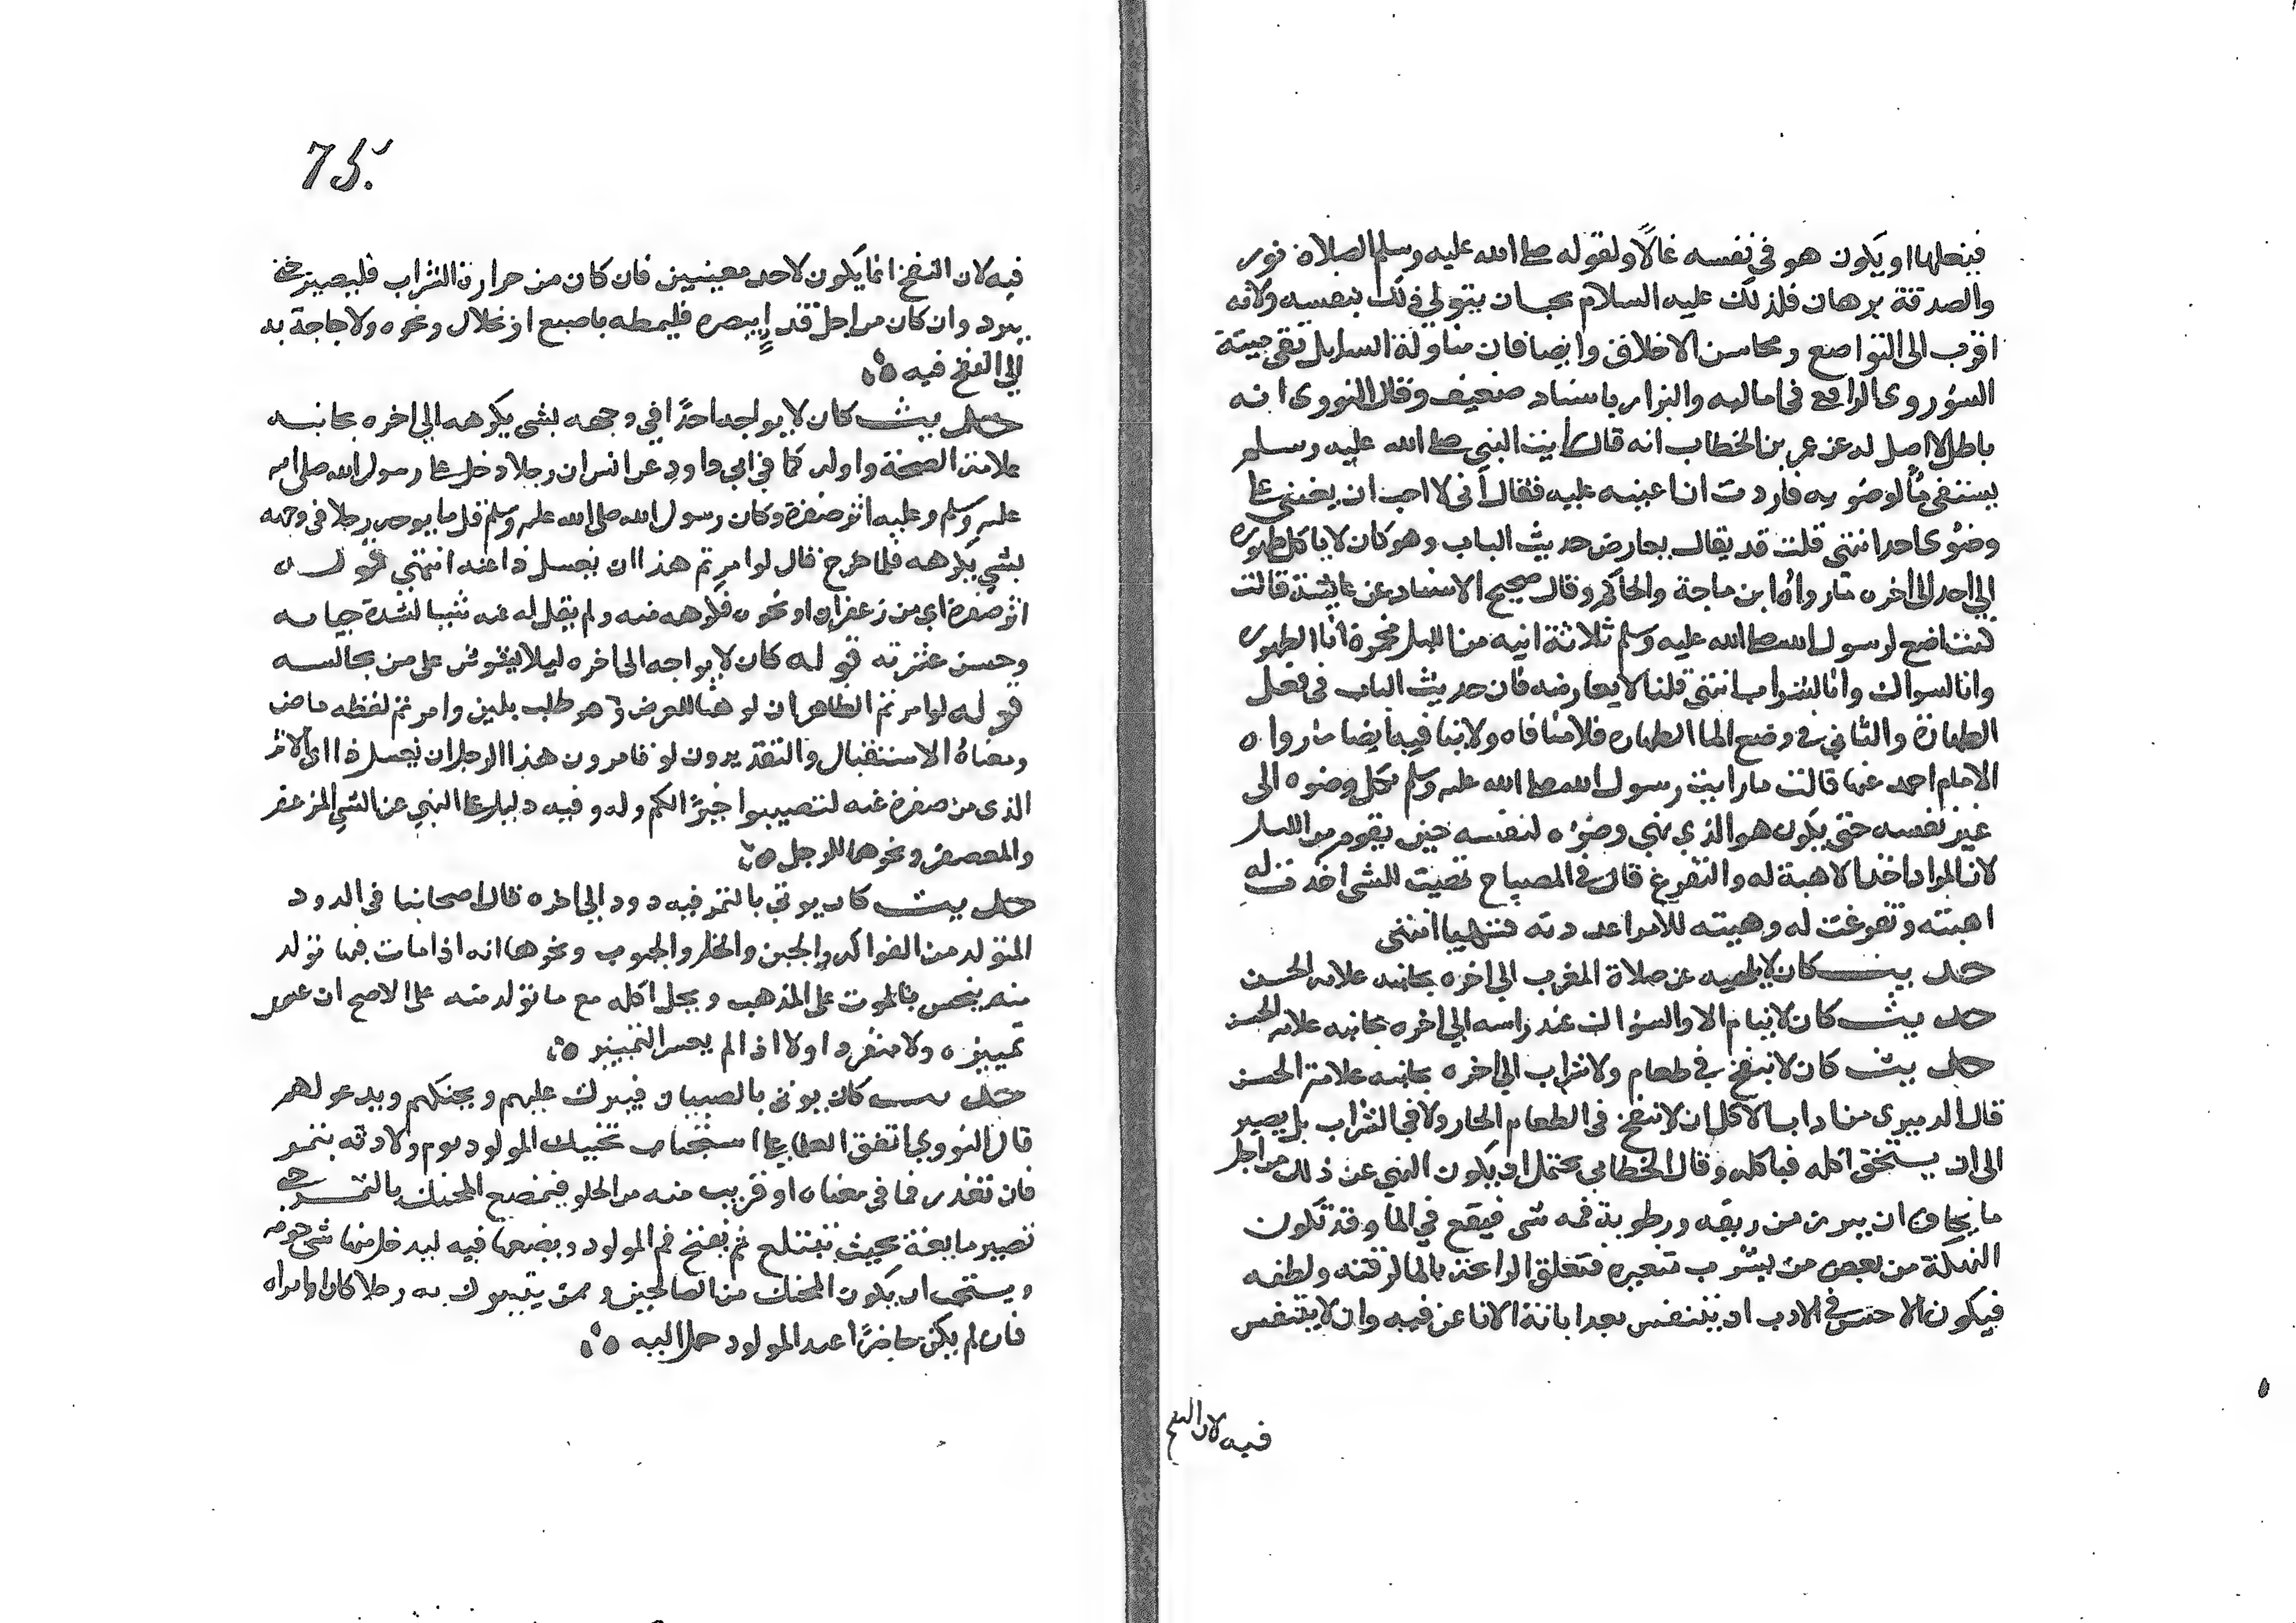 فيفعلها او يكون هو في نفسه غالا ولقوله صلى الله عليه وسلم الصلاة نور
والصدقة برهان فلذلك عليه السلام يحب ان يتولى ذلك بنفسه ولانه
اقرب الى التواضع ومحاسن الاخلاق وايضا فان مناولة السايل تقي ميتة
السؤ روى الرافعي في اماليه والبزار باسناد ضعيف وقال النووى انه
باطل لا اصل له عن عمر بن الخطاب انه قال رايت النبي صلى الله عليه وسلم
يستقي ماء لوضويه فاردت ان اعينه عليه فقال انى لا احب ان يعينني على
وضوى احد انتهى قلت قد يقال يعارض حديث الباب وهو كان لا ياكل طهوره
الي احد الى اخره مارواه ابن ماجة والحاكم وقال صحيح الاسناد عن عايشة قالت
كنت اضع لرسول الله صلى الله عليه وسلم ثلاثة انيه من الليل مخمرة انا لطهوره
وانا لسواكه وانا لشرابه انتهى قلنا لا يعارضه فان حديث الباب في فعل
الطهارة والثاني في وضع الما الطهاره فلا منافاه ولا ينافيه ايضا مارواه
الامام احمد عنها قالت ما رايت رسول الله صلى الله عليه وسلم يكل وضوه الى
غير نفسه حتى يكون هو الذي يهيي وضؤه لنفسه حين يقوم من الليل
لان المراد اخذ الاهبة له والتفرغ قال في المصباح تهيت للشى اخذت له
اهبته وتفرغت له وهيته للامر اعددته فتهيا انتهى
حديث كان لا يلهيه عن صلاة المغرب الي اخره بجانبه علامة الحسن
حديث كان لا ينام الا والسواك عند راسه الي اخره بجانبه علامة الحسن
حديث كان لا ينفخ في طعام ولا شراب الي اخره بجانبه علامة الحسن
قال الدميرى من اداب الاكل ان لا ينفخ في الطعام الحار ولا في الشراب بل يصبر
الى ان يستحق اكله فياكله وقال الخطابي يحتمل ان يكون النهي عن ذلك من اجل
ما يخاف ان يبرز من ريقه ورطوبة فمه شى فيقع في الما وقد تكون
النكهة من بعض من يشرب متغيره فتعلق الرائحة بالما لرقته ولطفه
فيكون الاحسن في الادب ان يتنفس بعد ابانة الانا عن فيه وان لا يتنفس
فيه لان النفخ
73
فيه لان النفخ انما يكون لاحد معنيين فان كان من حرارة الشراب فليصبر حتى
يبرد وان كان من اجل قذا يبصره فليمطه باصبع او خلال ونحوه ولا حاجة به
الي النفخ فيه
حديث كان لا يواجه احدًا في وجهه بشى يكرهه الي اخره بجانبه
علامة الصحة واوله كما في ابي داود عن انس ان رجلا دخل على رسول الله صلى الله
عليه وسلم وعليه اثر صفرة وكان رسول الله صلى الله عليه وسلم قل ما يواجه رجلا في وجهه
بشي يكرهه فلما خرج قال لو امرتم هذا ان يغسل ذا عنه انتهي قوله
اثر صفرة اي من زعفران او نحوه فكرهه منه ولم يقل له عنه شيا لشدة حيايه
وحسن عشرته قوله كان لا يواجه الى اخره ليلا يشوش على من يجالسه
قوله لو امرتم الظاهر ان لو هنا للعرض وهو طلب بلين وامرتم لفظه ماض
ومعناه الاستقبال والتقدير دون لو تامرون هذا الرجل ان يغسل ذا اى الاثر
الذى من صفرة عنه لتصيبوا خيرًا لكم وله وفيه دليل على النهي عن الشي المزعفر
والمعصفر ونحوهما للرجل
حديث كان يوتي بالتمر فيه دود الي اخره قال اصحابنا في الدود
المتولد من الفواكه والجبن والخل والحبوب ونحوها انه اذا مات فيما تولد
منه ينجس بالموت على المذهب ويحل اكله مع ما تولد منه على الاصح ان عسر
تمييزه ولا منفردا ولا اذا لم يعسر التمييز
حديث كان يوتى بالصبيان فيبرك عليهم ويحنكهم ويدعو لهم
قال النووي اتفق العلما على استحباب تحنيك المولود يوم ولادته بتمر
فان تعذر فما في معناه او قريب منه من الحلو فيمضع المحنك بالتمر حتى
تصير مايعة بحيث تبتلع ثم يفتح فم المولود ويضعها فيه ليدخل منها شى جوفه
ويستحب ان يكون المحنك من الصالحين وممن يتبرك به رجلا كان او امراه
فان لم يكن حاضرًا عند المولود حمل اليه